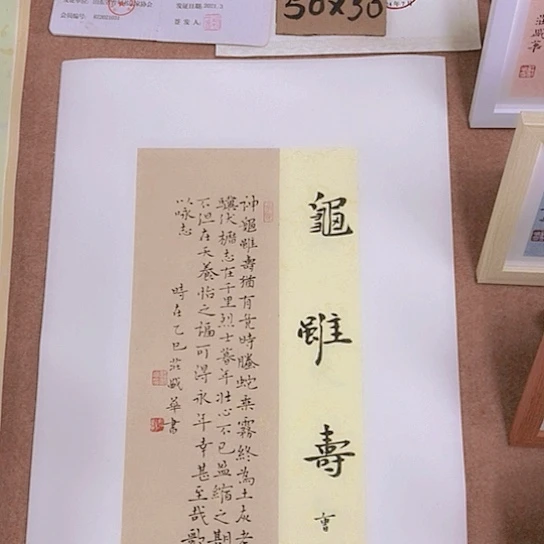 发证日期 2021.3
会员编号：
签发人：
50×30
龜雖壽 曹
神龜雖壽猶有竟時騰蛇乘霧終為土灰老
驥伏櫪志在千里烈士暮年壯心不已盈縮之期
不但在天養怡之福可得永年幸甚至哉歌
以詠志
時在乙巳莊華書